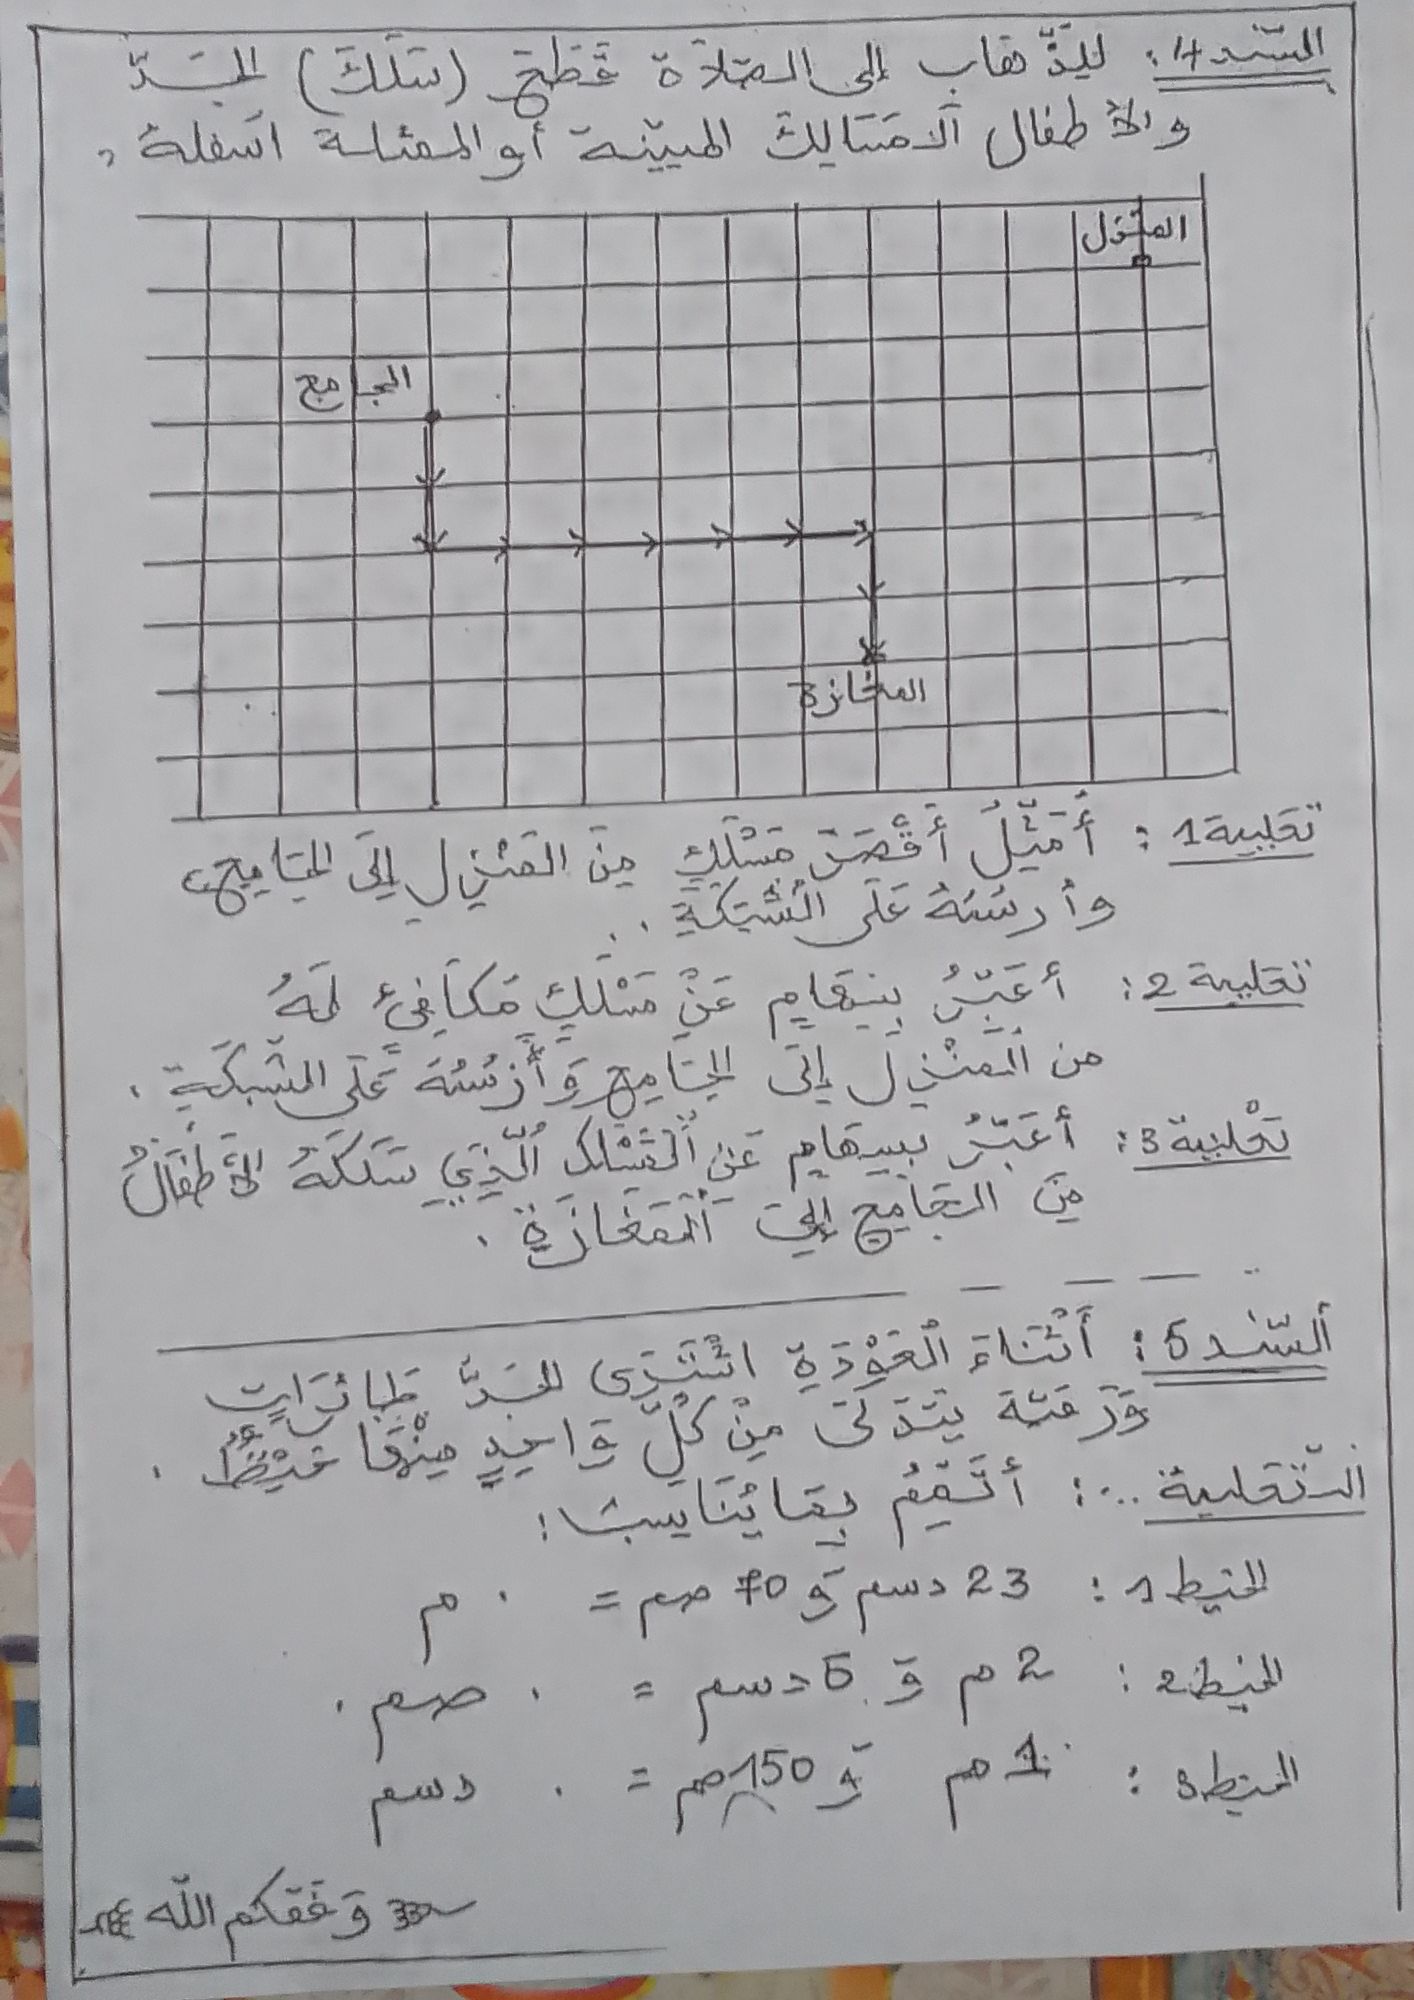 السّند 4: للذّهاب إلى الصّلاة قطع (سَلَكَ) الجَدّ
والأطفال المسالِكَ المبيّنة أو الممثلة أسفله.
المنزل
الجامع
المغازة
تعليمة 1: أُمَثِّلُ أَقْصَرَ مَسْلَكٍ مِنَ المَنْزِلِ إِلَى الجَامِعِ،
وأرسُمُهُ عَلَى الشَّبَكَةِ..
تعليمة 2: أعَبِّرُ بِسِهَامٍ عَنْ مَسْلَكٍ مُكَافِئٍ لَهُ
من المَنْزِلِ إِلَى الجَامِعِ وَأَرْسُمُهُ عَلَى الشَّبَكَةِ.
تعليمة 3: أُعَبِّرُ بِسِهَامٍ عَنِ المَسْلَكِ الَّذِي سَلَكَهُ الأَطْفَالُ
مِنَ الجَامِعِ إِلَى المَغَازَةِ.
السّند 5: أَثْنَاءَ الْعَوْدَةِ اشْتَرَى الجَدُّ طَائِرَاتٍ
وَرَقِيّة يَتَدَلَّى مِنْ كُلِّ وَاحِدٍ مِنْهَا خَيْطٌ.
التّعليمة...: أُتَمِّمُ بِمَا يُنَاسِبُ:
الخيط 1: 23 دسم وَ 70 صم = . م
الخيط 2: 2 م وَ 5 دسم = . صم.
الخيط 3: 1 م وَ 150 صم = . دسم
وَفّقكم الله